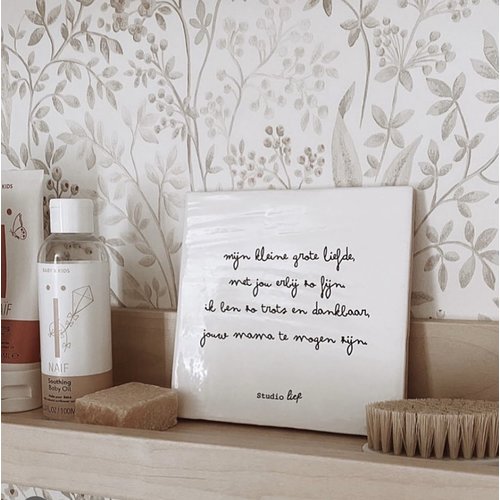 mijn kleine grote liefde,
met jou erbij zo fijn.
ik ben zo trots en dankbaar,
jouw mama te mogen zijn.
Studio lief
BABY & KIDS
NAÏF
Soothing
Baby Oil
100ML
KIDS